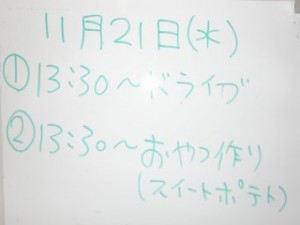 11月21日(水)
①13:30～ドライブ
②13:30～おやつ作り
(スイートポテト)